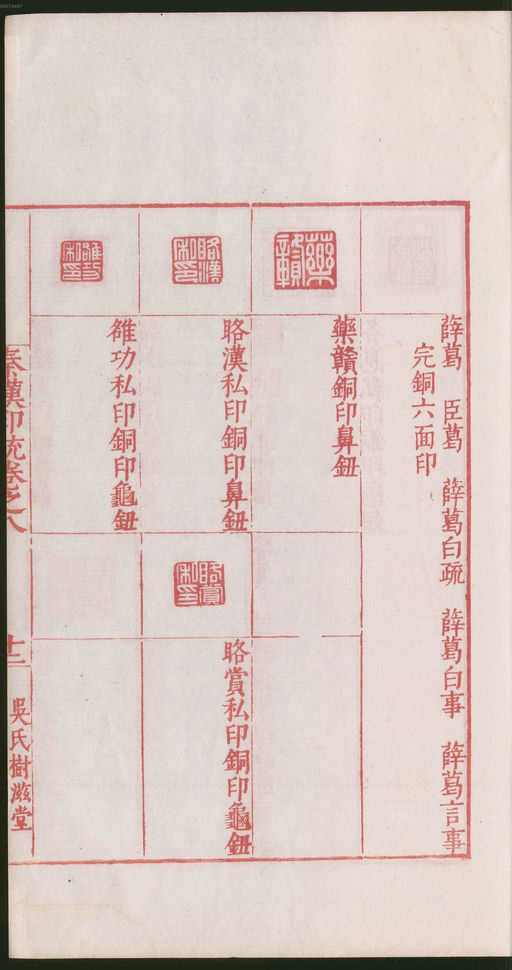 薛葛　臣葛　薛葛白疏　薛葛白事　薛葛言事
完銅六面印
藥贛銅印鼻鈕
賂漢私印銅印鼻鈕
賂賞私印銅印龜鈕
雒功私印銅印龜鈕
秦漢印統卷之八
十二
吳氏樹滋堂
00073447